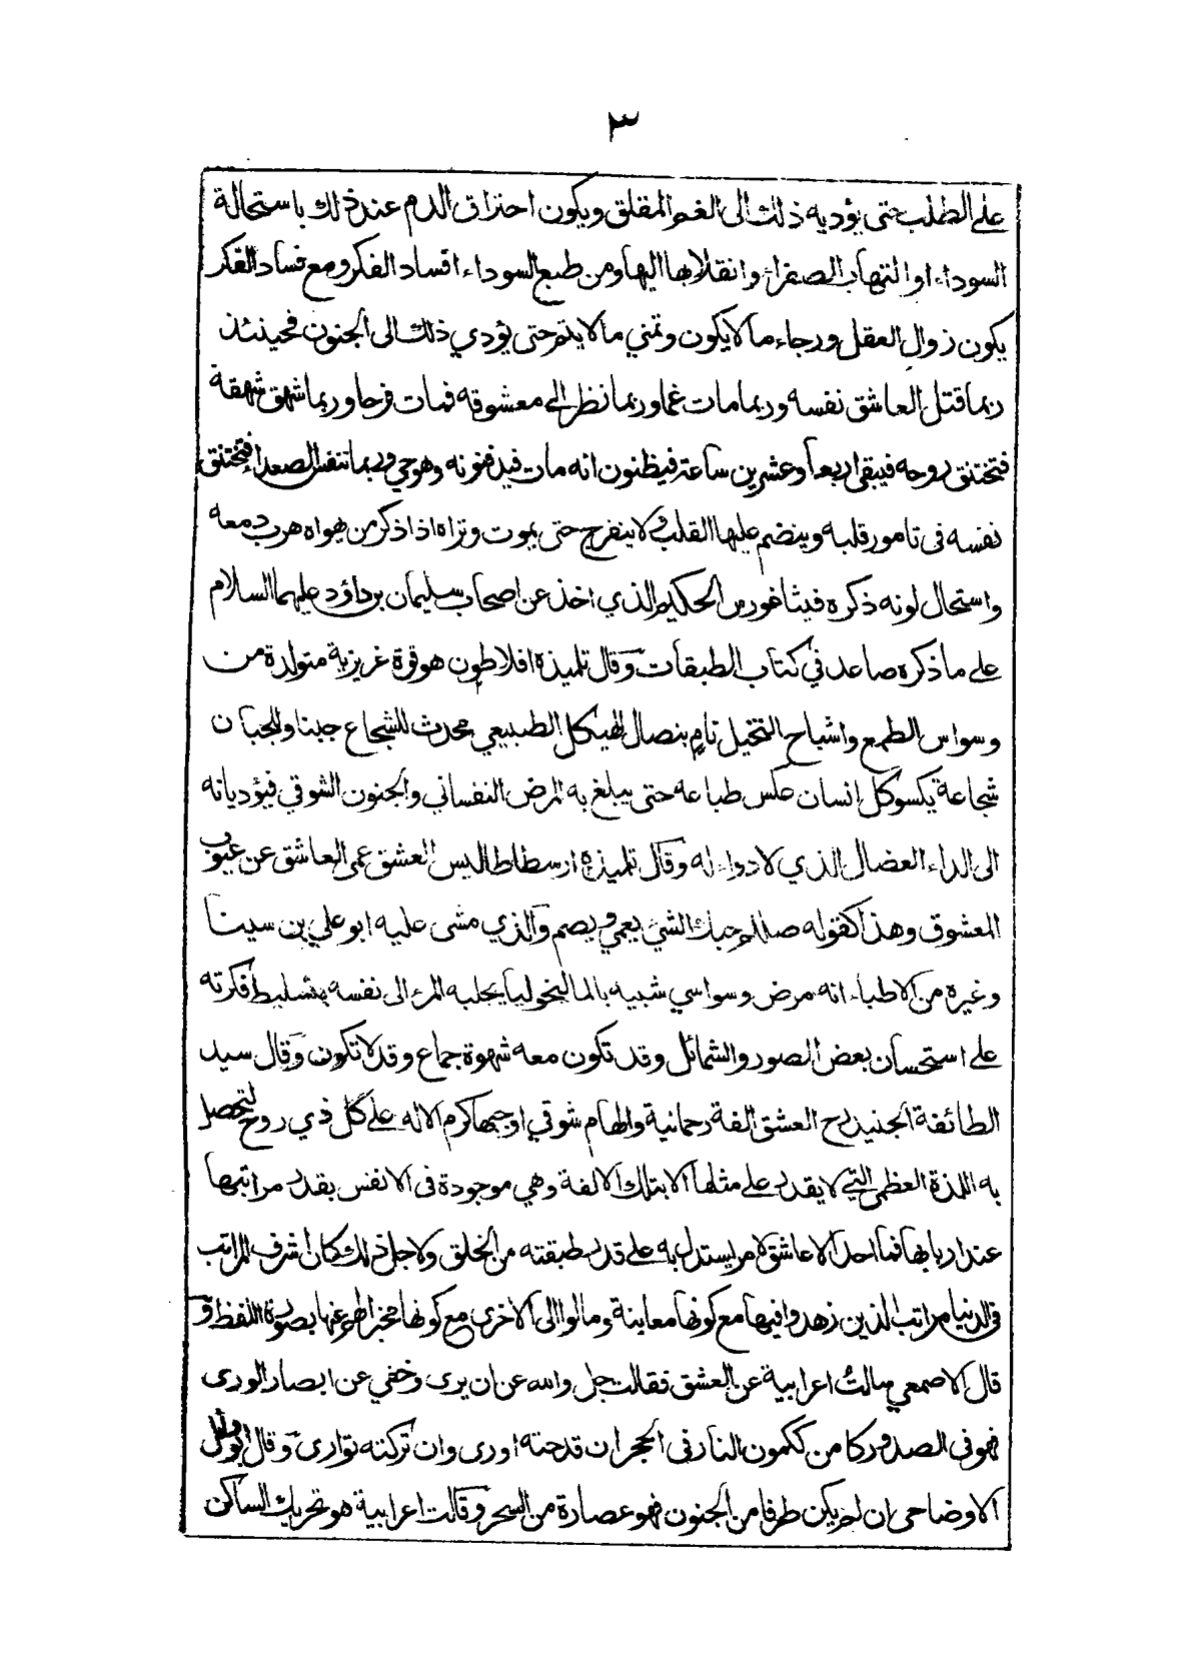 ٣
على الطلب حتى يؤديه ذلك الى الغم المقلق ويكون احتراق الدم عند ذلك باستحالة
السوداء او التهاب الصفراء وانقلابها اليها ومن طبع السوداء افساد الفكر ومع فساد الفكر
يكون زوال العقل ورجاء مالا يكون وتمني مالا يتم حتى يؤدي ذلك الى الجنون فحينئذ
ربما قتل العاشق نفسه وربما مات غما وربما نظر الى معشوقه فمات فرحا وربما شهق شهقة
فتختنق روحه فيبقى اربعا وعشرين ساعة فيظنون انه مات فيدفنونه وهو حي وربما تنفس الصعداء فتختنق
نفسه في تامور قلبه وينضم عليها القلب ولا ينفرج حتى يموت وتراه اذا ذكر من يهواه هرب دمعه
واستحال لونه ذكره فيثاغورس الحكيم الذي اخذ عن اصحاب سليمان بن داؤد عليهما السلام
على ما ذكره صاعد في كتاب الطبقات وقال تلميذه افلاطون هو قوة غريزية متولدة من
وسواس الطمع واشباح التخيل نام بنصال الهيكل الطبيعي محدث للشجاع جبنا وللجبان
شجاعة يكسو كل انسان عكس طباعه حتى يبلغ به المرض النفساني والجنون الشوقي فيؤديانه
الى الداء العضال الذي لا دواء له وقال تلميذه ارسطاطاليس العشق عمى العاشق عن عيوب
المعشوق وهذا كقوله صللم حبك الشئ يعمي ويصم والذي مشى عليه ابو علي بن سينا
وغيره من الاطباء انه مرض وسواسي شبيه بالماليخوليا يجلبه المرء الى نفسه بتسليط فكرته
على استحسان بعض الصور والشمائل وقد تكون معه شهوة جماع وقد لا تكون وقال سيد
الطائفة الجنيد رح العشق الفة رحمانية والهام شوقي اوجبها كرم الاله على كل ذي روح لتحصل
به اللذة العظمى التي لا يقدر على مثلها الا بتلك الالفة وهي موجودة في الانفس بقدر مراتبها
عند اربابها فما احد الا عاشق لامر يستدل به على قدر طبقته من الخلق ولاجل ذلك كان اشرف المراتب
في الدنيا مراتب الذين زهدوا فيها مع كونها معاينة ومالوا الى الاخرى مع كونها مخبرا لهم عنها بصورة اللفظ و
قال الاصمعي سالت اعرابية عن العشق فقالت جل والله عن ان يرى وخفي عن ابصار الورى
فهو في الصدور كامن ككمون النار في الحجر ان قدحته اورى وان تركته توارى وقال ابو وائل
الاوضاحي ان لم يكن طرفا من الجنون فهو عصارة من السحر وقالت اعرابية هو تحريك الساكن